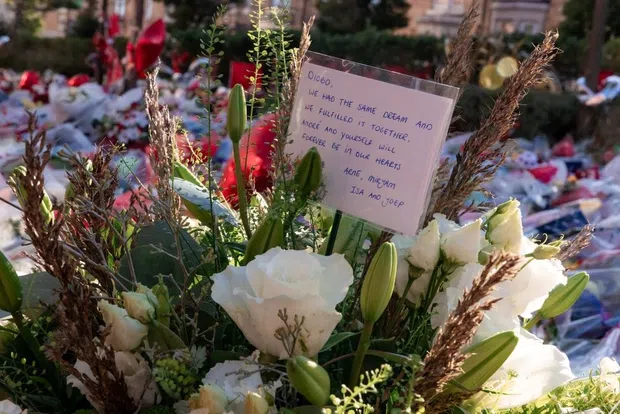 DIOGO,
WE HAD THE SAME DREAM AND
WE FULFILLED IT TOGETHER.
MORE AND YOURSELF WILL
FOREVER BE IN OUR HEARTS
ARNE, MIRJAM
ISA AND JOEP